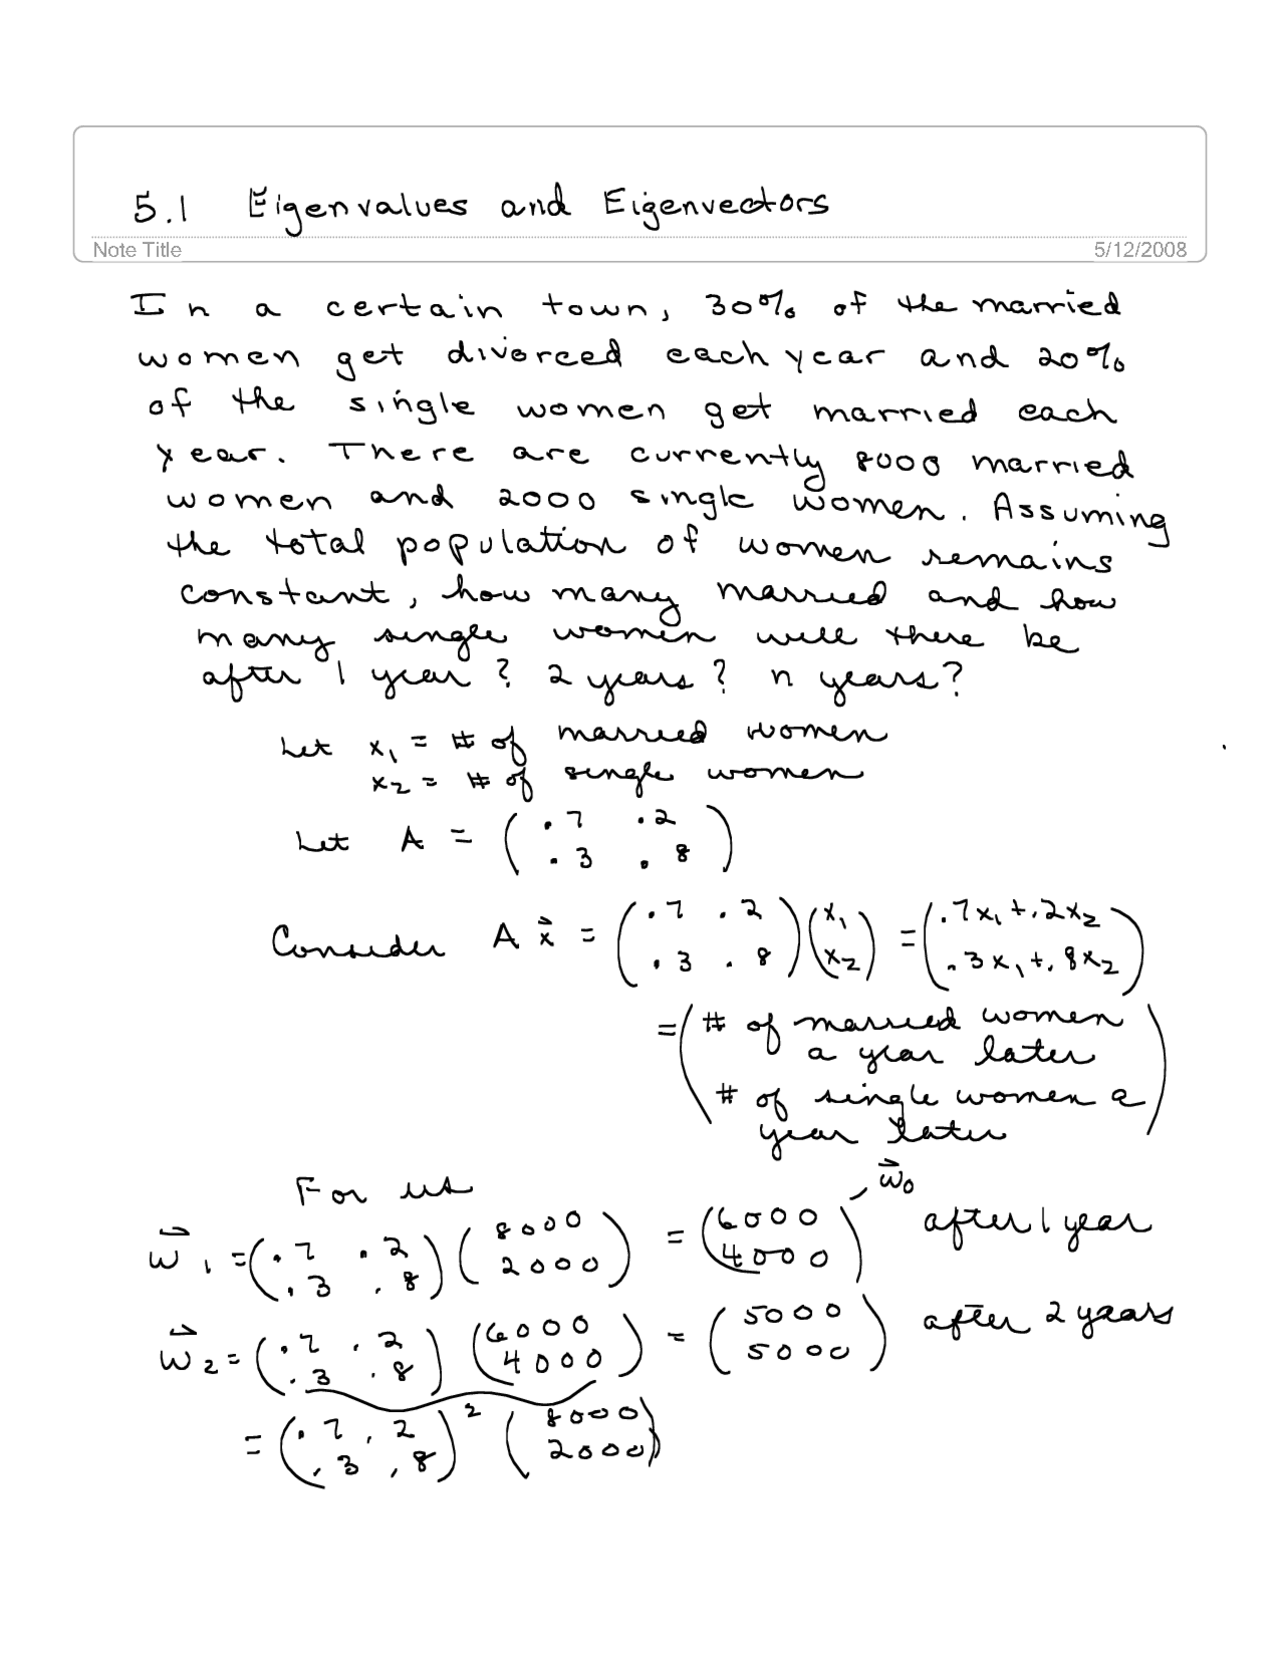 5.1 Eigenvalues and Eigenvectors
Note Title 5/12/2008
In a certain town, 30% of the married
women get divorced each year and 20%
of the single women get married each
year. There are currently 8000 married
women and 2000 single women. Assuming
the total population of women remains
constant, how many married and how
many single women will there be
after 1 year? 2 years? n years?
Let x₁ = # of married women
x₂ = # of single women
Let A = ( .7 .2
.3 .8 )
Consider A x⃗ = ( .7 .2 ) ( x₁ ) = ( .7x₁ + .2x₂ )
( .3 .8 ) ( x₂ ) ( .3x₁ + .8x₂ )
= ( # of married women
a year later
# of single women a
year later )
For us w⃗₀
w⃗₁ = ( .7 .2 ) ( 8000 ) = ( 6000 ) after 1 year
( .3 .8 ) ( 2000 ) ( 4000 )
w⃗₂ = ( .7 .2 ) ( 6000 ) = ( 5000 ) after 2 years
( .3 .8 ) ( 4000 ) ( 5000 )
= ( .7 .2 )² ( 8000 )
( .3 .8 ) ( 2000 )